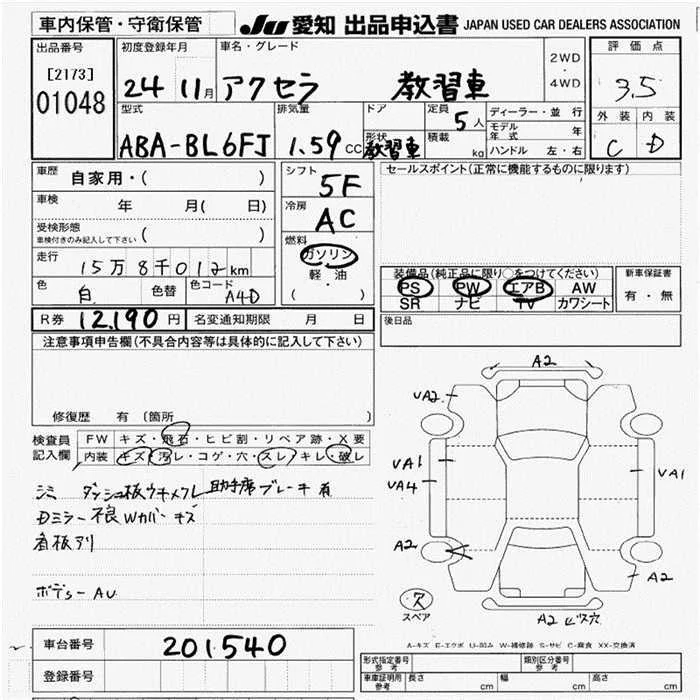 車内保管・守衛保管 JU 愛知 出品申込書 JAPAN USED CAR DEALERS ASSOCIATION
出品番号 初度登録年月 車名・グレード 2WD・4WD 評価点
[2173] 24 11月 アクセラ 教習車 3.5
01048
型式 排気量 ドア 定員 ディーラー・並行 外装 内装
ABA-BL6FJ 1.59 CC 形状 教習車 5人 積載 kg モデル年式 年 C D
ハンドル 左・右
車歴 自家用・( ) シフト 5F セールスポイント(正常に機能するものに限ります)
車検 年 月( 日) 冷房 AC
受検形態 ( )
車検付きのみ記入して下さい
燃料 ガソリン
軽・油
( )
走行 15万8千012km
色 白 色替 色コード A4D
装備品(純正品に限り○をつけてください) 新車保証書
PS PW エアB AW 有・無
SR ナビ TV カワシート
R券 12,190円 名変通知期限 月 日 後日品
注意事項申告欄(不具合内容等は具体的に記入して下さい)
修復歴 有〔箇所 〕
検査員記入欄 FW キズ・飛石・ヒビ割・リペア跡・X要
内装 キズ・汚レ・コゲ・穴・スレ・キレ・破レ
シミ ダッシュ板ウキメクレ 助手席ブレーキ有
Dミラー不良 Wカバーキズ
看板アリ
ボデー AU
A2
VA2
VA1
VA4
VA1
A2
A2
欠
スペア
A2 ビス穴
A-キズ E-エクボ U-凹み W-補修跡 S-サビ C-腐食 XX-交換済
車台番号 201540
登録番号
形式指定番号 参考 類別区分番号 参考
車庫証明用 参考 長さ cm 幅 cm 高さ cm